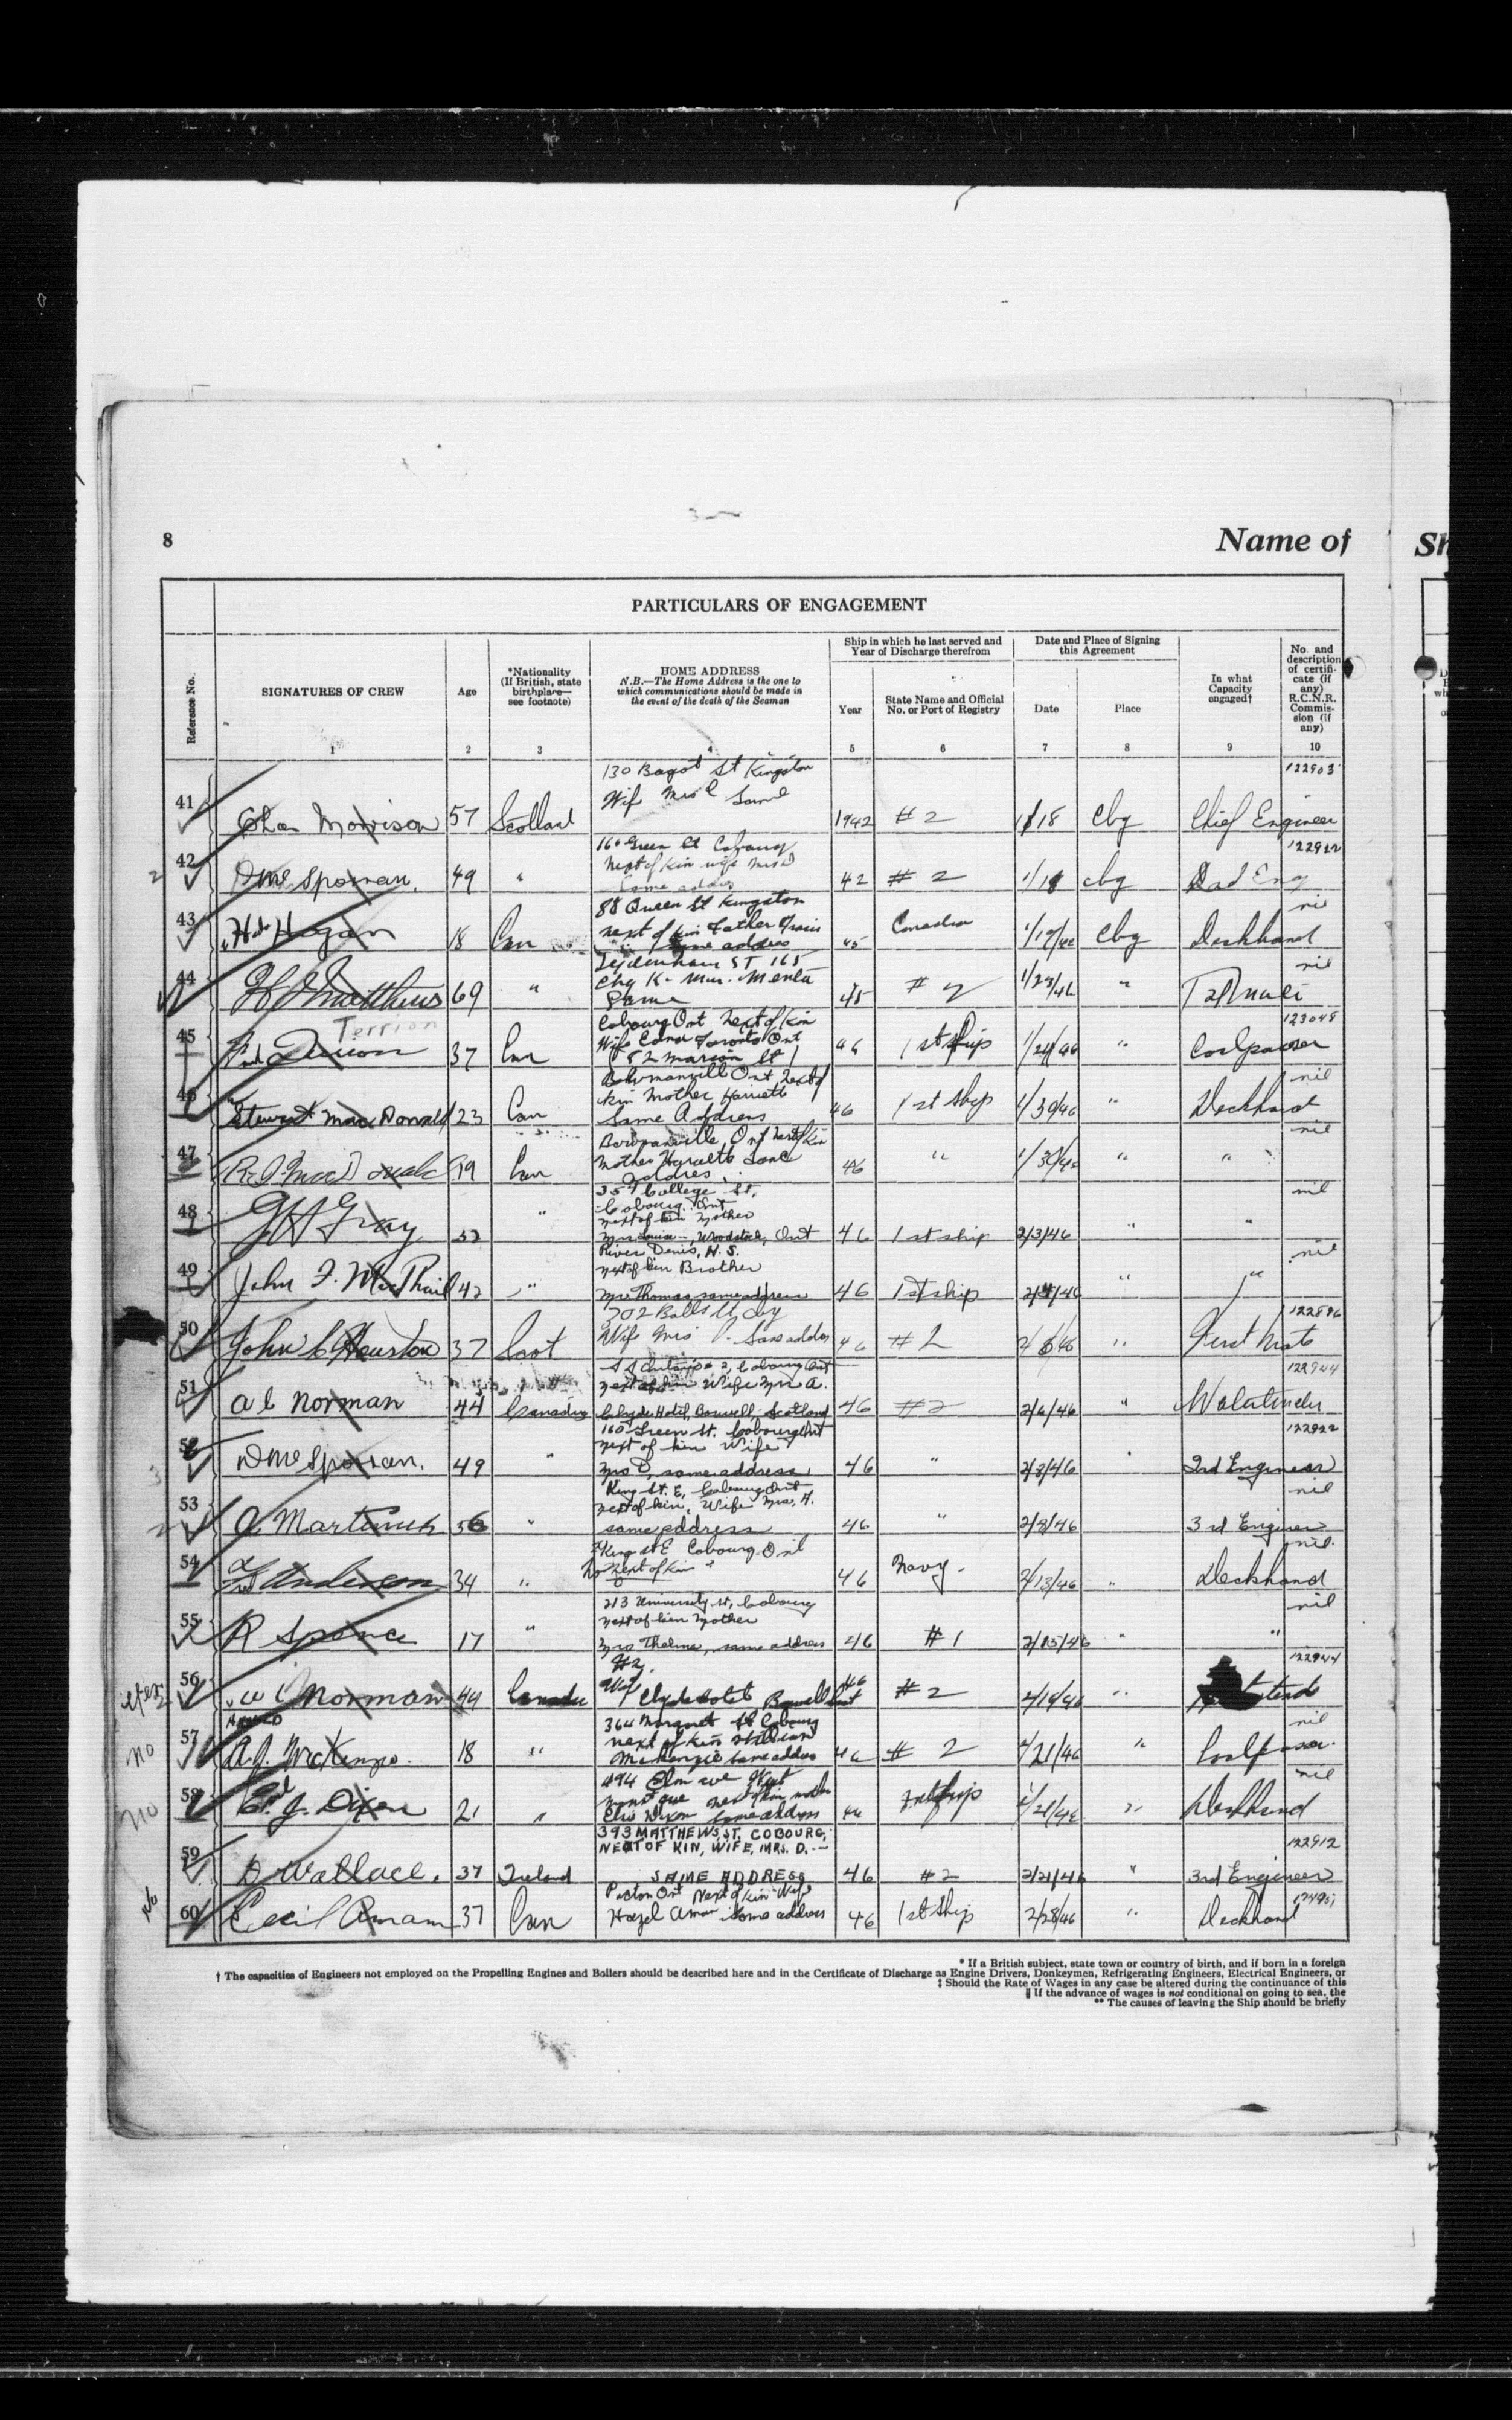 8
Name of
Sh
PARTICULARS OF ENGAGEMENT
Reference No.
SIGNATURES OF CREW
Age
*Nationality
(If British, state
birthplace—
see footnote)
HOME ADDRESS
N.B.—The Home Address is the one to
which communications should be made in
the event of the death of the Seaman
Ship in which he last served and
Year of Discharge therefrom
Year
State Name and Official
No. or Port of Registry
Date and Place of Signing
this Agreement
Date
Place
In what
Capacity
engaged†
No. and
description
of certifi-
cate (if
any)
R.C.N.R.
Commis-
sion (if
any)
1 2 3 4 5 6 7 8 9 10
130 Bagot St Kingston
122903
Wife Mrs C Same
41 Chas Morrison 57 Scotland 1942 # 2 1/18 Cbg Chief Engineer
160 Green St Cobourg
122922
next of kin wife Mrs D
42 D McSporran. 49 " Same addres 42 # 2 1/18 cbg 2nd Eng
88 Queen St Kingston
nil
next of kin Father
43 Hogan 18 Can same address 45 Canadian 1/19/46 Cbg Deckhand
Sydenham ST 165
nil
44 Matthews 69 " Same 45 # 2 "
Terrion
Cobourg Ont Next of kin
123048
Wife Edna Toronto Ont
45 37 Can 82 Marion St 46 1st Ship 1/24/46 " Coalpasser
Bowmanvill Ont Next of
nil
kin Mother Harriett
46 Stewart MacDonald 23 Can Same Address 46 1st Ship 1/30/46 " Deckhand
Bowmanville, Ont Next of kin
nil
Mother Harriett Same
47 19 Can addres 46 " 1/30/46 " "
College St.
nil
Cobourg. Ont
next of kin Mother
48 G H Gray 52 " Mrs Louisa -, Woodstock, Ont 46 1st ship 2/3/46 " "
River Denis, N.S.
nil
next of kin Brother
49 John F. MacPhail 42 " Mr Thomas same address 46 1st ship 2/4/46 " "
702 Balls St Cbg
122896
Wife Mrs
50 John C Houston 37 Scot 46 # 2 2/6/46 " First Mate
S S Ontario # 2, Cobourg Ont
122944
next of kin Wife Mrs A.
51 A C Norman 44 Canadian Clyde Hotel, Boswell, Scotland 46 #2 2/6/46 "
160 Green St. Cobourg Ont
122922
next of kin Wife
52 D McSporran. 49 " Mrs D, same address 46 " 2/8/46 " 2nd Engineer
King St. E, Cobourg Ont
nil
next of kin, Wife Mrs, A.
53 A Martinuk 56 " same address 46 " 2/8/46 3rd Engineer
King St E Cobourg Ont
nil.
No next of kin
54 Anderson 34 " 46 Navy. 2/13/46 " Deckhand
213 University St, Cobourg
nil
next of kin Mother
55 R Spence 17 " Mrs Thelma, same address 46 # 1 2/15/46 " "
#2.
122944
Wife
56 Norman 44 Canada Clyde Hotel 46 # 2 2/19/46 "
364 Margaret St Cobourg
nil
next of kin
no 57 A.J. McKenzie. 18 " McKenzie same addres 46 # 2 2/21/46 " Coalpasser.
494 Elm ave West
nil
next of kin, mother
no 58 J. Dixon 21 " Dixon same address 46 1st ship 2/21/46 " Deckhand
393 MATTHEWS, ST. COBOURG,
122912
NEXT OF KIN, WIFE, MRS. D. -
59 D Wallace. 37 Ireland SAME ADDRESS 46 #2 2/21/46 " 3rd Engineer
Picton Ont Next of kin Wife
No 60 Cecil Amam 37 Can Hazel Amam Same address 46 1st Ship 2/28/46 " Deckhand
* If a British subject, state town or country of birth, and if born in a foreign
† The capacities of Engineers not employed on the Propelling Engines and Boilers should be described here and in the Certificate of Discharge as Engine Drivers, Donkeymen, Refrigerating Engineers, Electrical Engineers, or
‡ Should the Rate of Wages in any case be altered during the continuance of this
‖ If the advance of wages is not conditional on going to sea, the
** The causes of leaving the Ship should be briefly